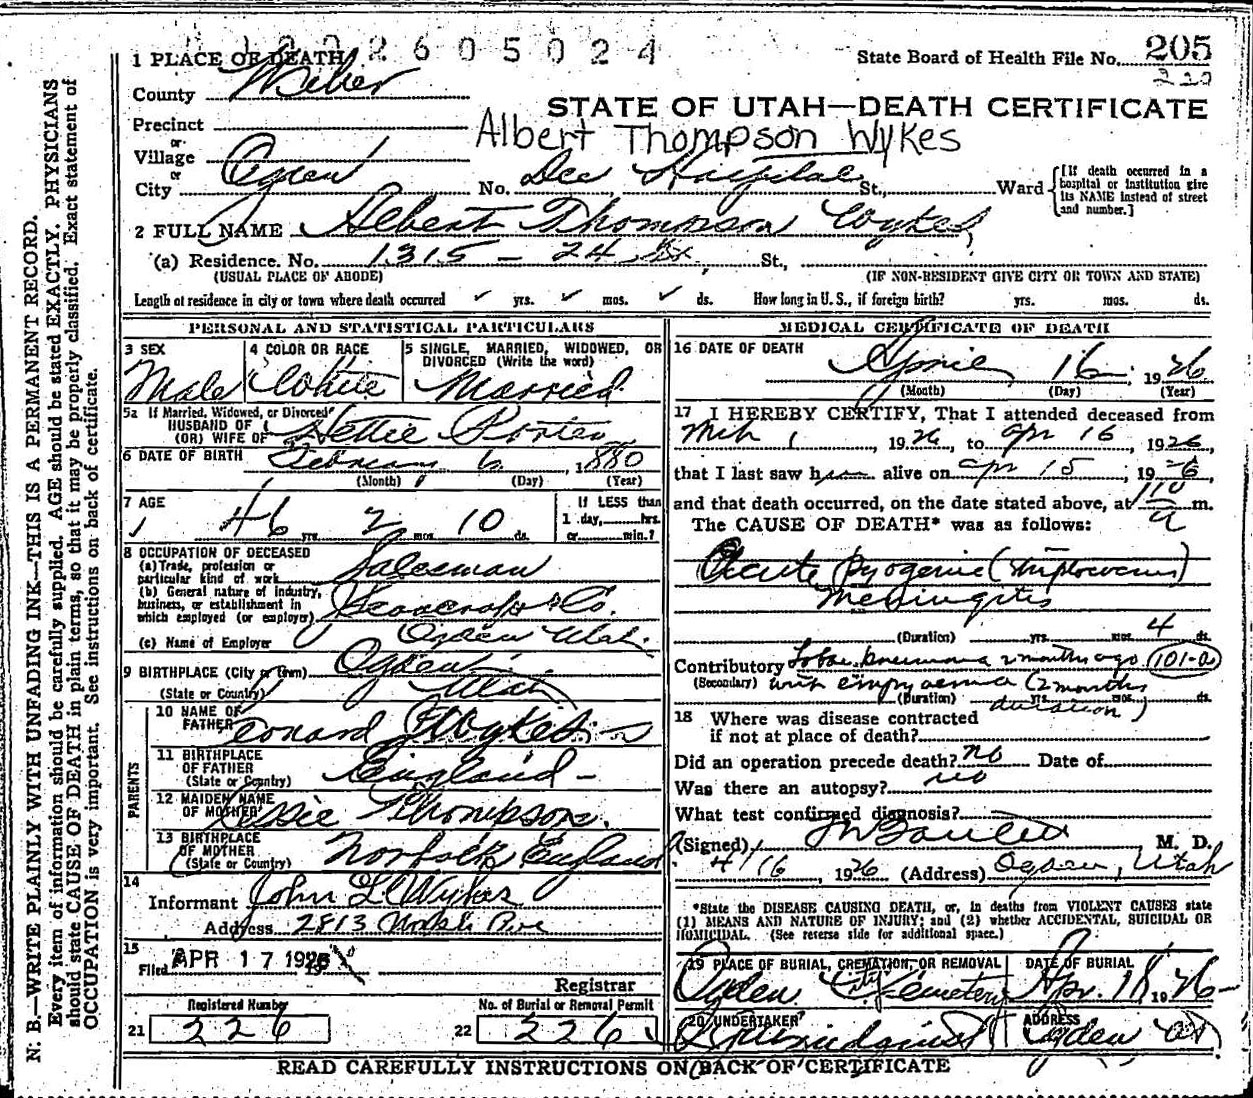 2605024
1 PLACE OF DEATH
State Board of Health File No. 205
220
County Weber
STATE OF UTAH—DEATH CERTIFICATE
Precinct
Albert Thompson Wykes
or
Village
or
City Ogden No. Dee Hospital St., Ward
[If death occurred in a hospital or institution give its NAME instead of street and number.]
2 FULL NAME Albert Thompson Wykes
(a) Residence. No. 1315 - 24 St., St.,
(USUAL PLACE OF ABODE) (IF NON-RESIDENT GIVE CITY OR TOWN AND STATE)
Length of residence in city or town where death occurred ✓ yrs. ✓ mos. ✓ ds. How long in U. S., if foreign birth? yrs. mos. ds.
PERSONAL AND STATISTICAL PARTICULARS
3 SEX
Male
4 COLOR OR RACE
White
5 SINGLE, MARRIED, WIDOWED, OR DIVORCED (Write the word)
Married
5a If Married, Widowed, or Divorced
HUSBAND OF
(OR) WIFE OF Hettie Porter
6 DATE OF BIRTH February 6, 1880
(Month) (Day) (Year)
7 AGE
46 yrs. 2 mos. 10 ds.
If LESS than
1 day, hrs.
or min.?
8 OCCUPATION OF DECEASED
(a) Trade, profession or
particular kind of work Salesman
(b) General nature of industry,
business, or establishment in
which employed (or employer) & Co.
(c) Name of Employer Ogden Utah.
9 BIRTHPLACE (City or Town) Ogden
(State or Country) Utah
PARENTS
10 NAME OF
FATHER Leonard G Wykes
11 BIRTHPLACE
OF FATHER
(State or Country) England
12 MAIDEN NAME
OF MOTHER Thompson.
13 BIRTHPLACE
OF MOTHER
(State or Country) Norfolk England
14
Informant John L Wykes
Address 2813 Ave
15
Filed APR 17 1926
Registrar
Registered Number
21 226
No. of Burial or Removal Permit
22 226
MEDICAL CERTIFICATE OF DEATH
16 DATE OF DEATH
April 16, 1926
(Month) (Day) (Year)
17 I HEREBY CERTIFY, That I attended deceased from
Mch 1, 1926, to Apr 16, 1926,
that I last saw him alive on Apr 15, 1926,
and that death occurred, on the date stated above, at 110 a m.
The CAUSE OF DEATH* was as follows:
Acute Pyogenic
Meningitis
(Duration) yrs. mos. 4 ds.
Contributory Lobar pneumonia 2 months ago 101-a
(Secondary) with empyaemia (2 months
(Duration) yrs. mos. ds.
duration)
18 Where was disease contracted
if not at place of death?
Did an operation precede death? no Date of
Was there an autopsy? no
What test confirmed diagnosis?
(Signed) M. D.
4/16, 1926 (Address) Ogden, Utah
*State the DISEASE CAUSING DEATH, or, in deaths from VIOLENT CAUSES state
(1) MEANS AND NATURE OF INJURY; and (2) whether ACCIDENTAL, SUICIDAL OR
HOMICIDAL. (See reverse side for additional space.)
19 PLACE OF BURIAL, CREMATION, OR REMOVAL
Ogden City Cemetery
DATE OF BURIAL
Apr. 18, 1926
20 UNDERTAKER
ADDRESS
Ogden Ut
READ CAREFULLY INSTRUCTIONS ON BACK OF CERTIFICATE
N. B.—WRITE PLAINLY WITH UNFADING INK—THIS IS A PERMANENT RECORD.
Every item of information should be carefully supplied. AGE should be stated EXACTLY. PHYSICIANS
should state CAUSE OF DEATH in plain terms, so that it may be properly classified. Exact statement of
OCCUPATION is very important. See instructions on back of certificate.